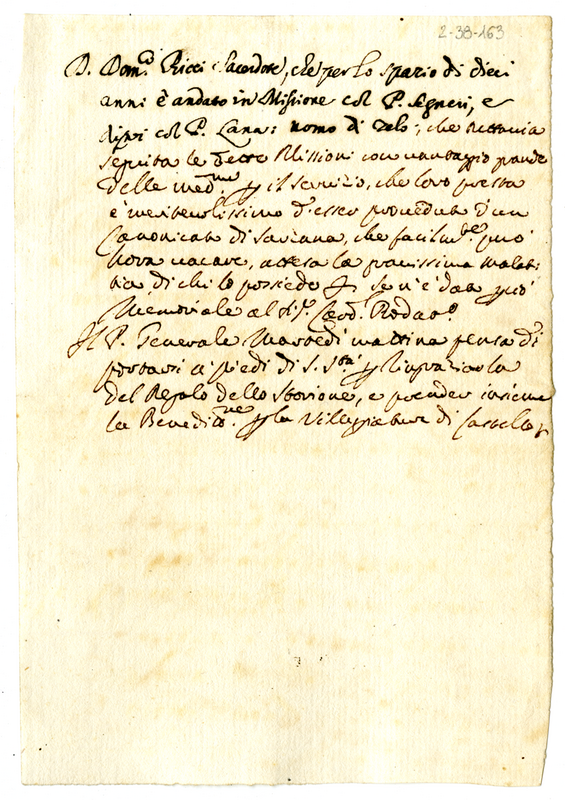 2-38-163
D. Dom.co Ricci Sacerdote, che per lo spazio di dieci
anni è andato in Missione col P. Segneri, e
di poi col P. Lana: uomo di zelo, che tuttavia
seguita le dette Missioni con vantaggio grande
delle med.me p il servizio, che loro presta
è meritevolissimo d'esser proveduto d'un
Canonicato di Savona, che facilm.te può
hora vacare, attesa la gravissima malat-
tia di chi lo possiede se n'è dato già
Memoriale al Sig.r Card.
Il P. Generale Martedì mattina pensa di
portarsi a' piedi di S. S.tà p ringraziarla
del Regalo dello Storione, e prender insieme
la Benediz.ne p la Villeggiatura di Castello